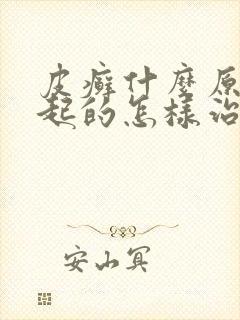 皮癣什麼原
起的怎樣治
安山冥